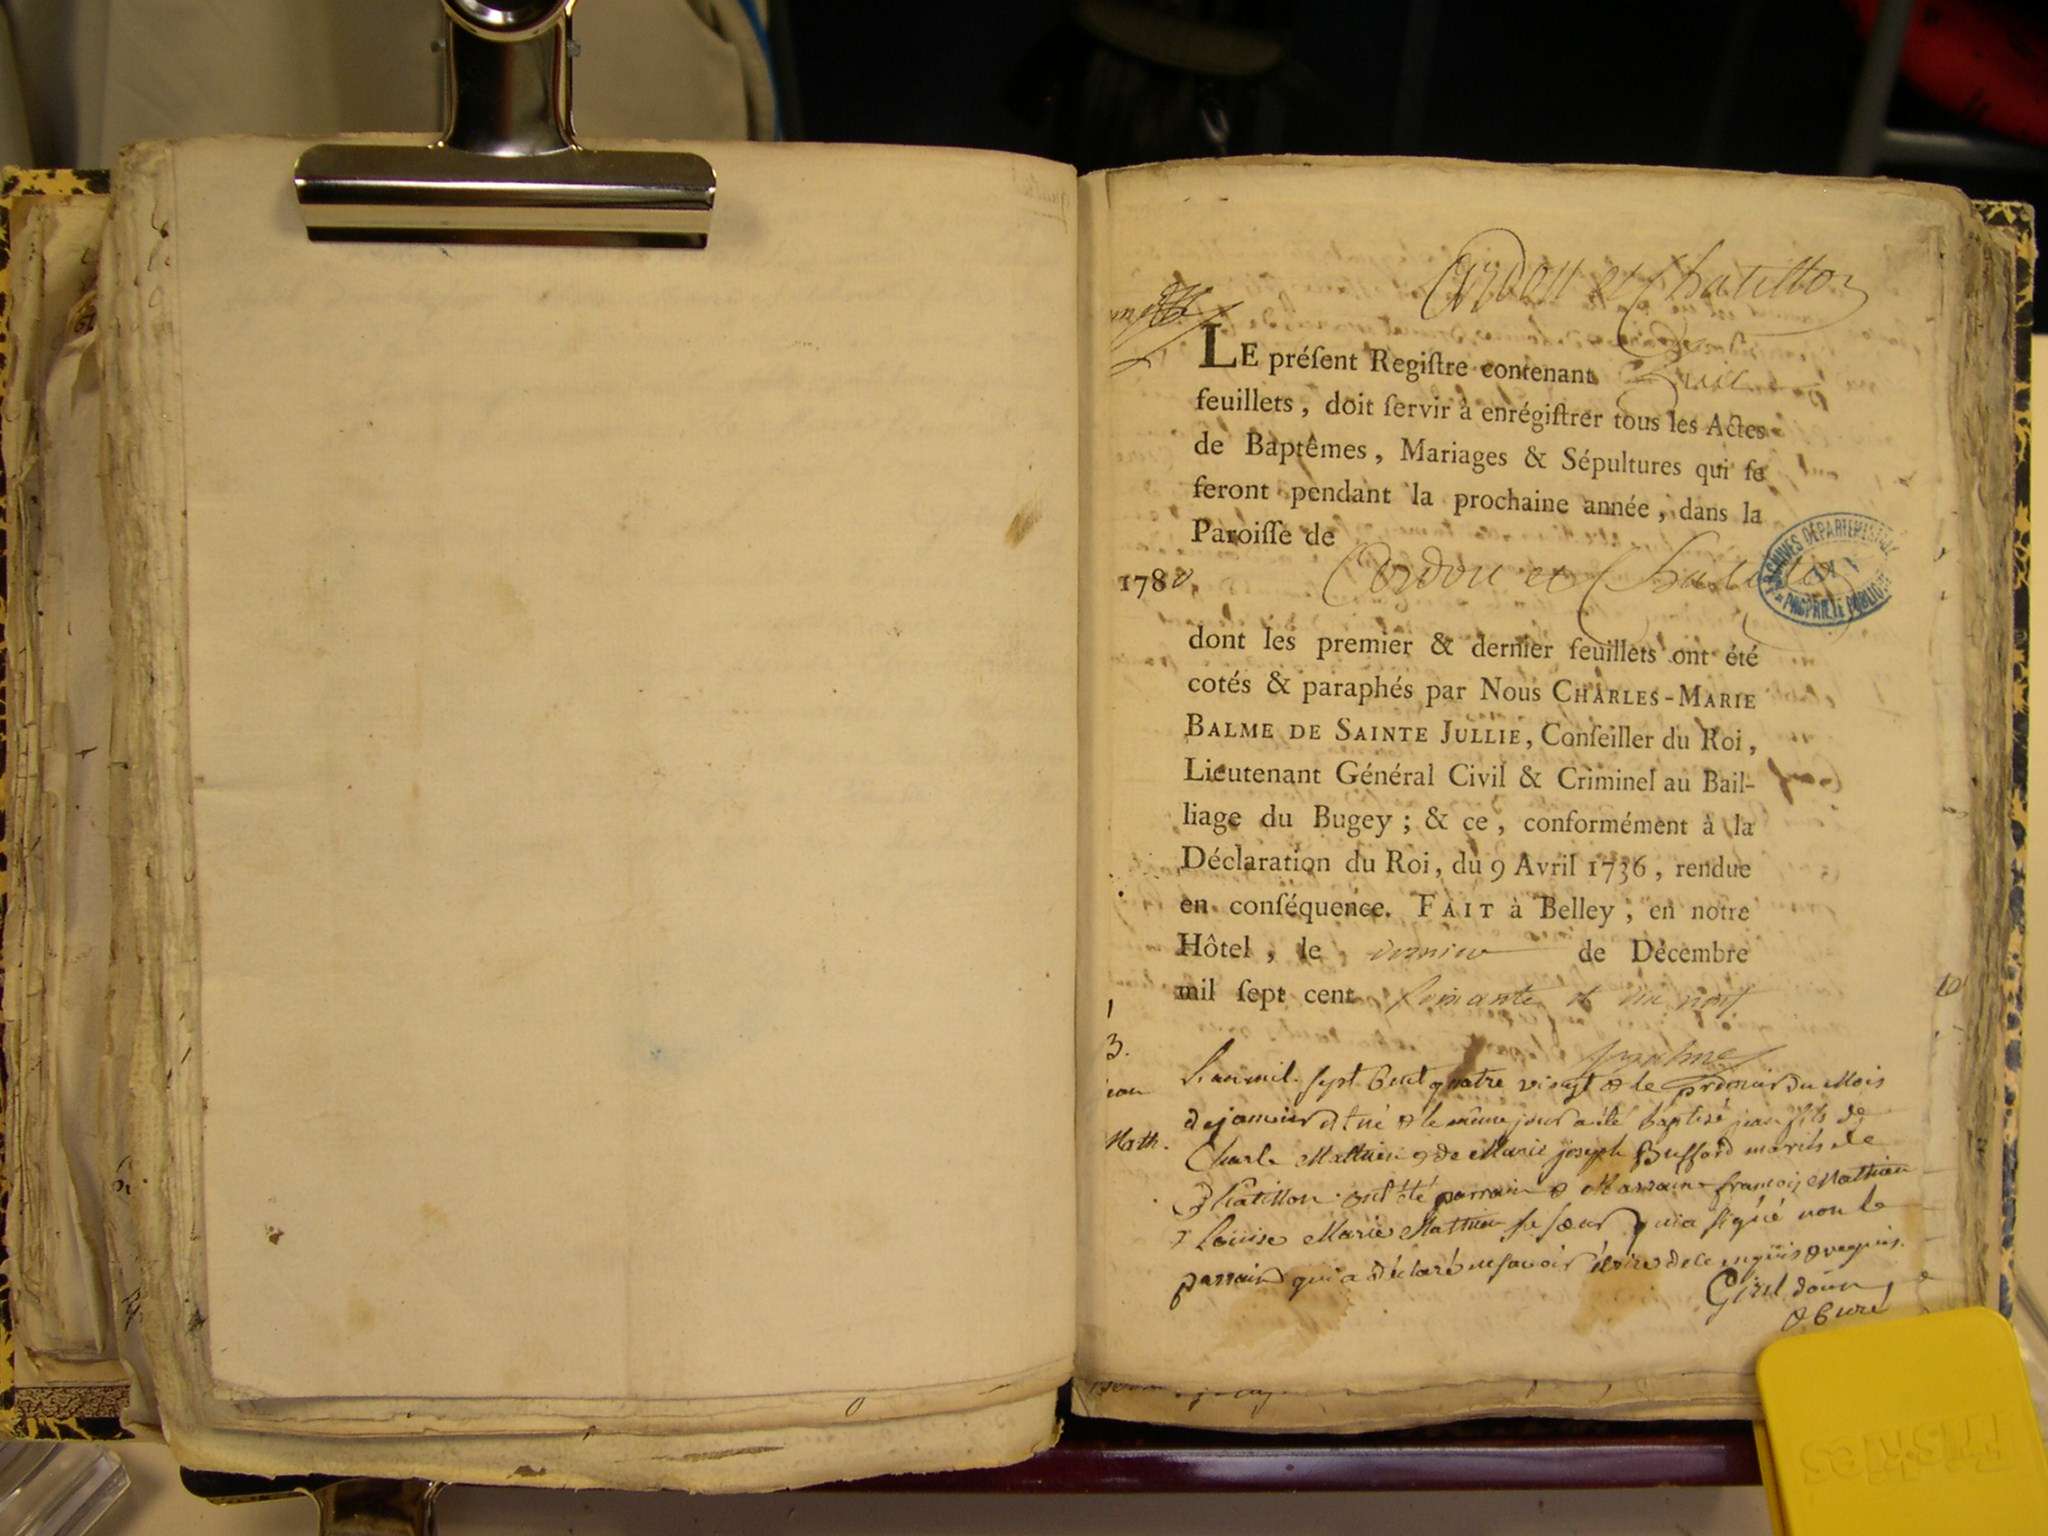 Cordon et Chatillon
LE préſent Regiſtre contenant
feuillets, doit ſervir à enrégiſtrer tous les Actes
de Baptêmes, Mariages & Sépultures qui ſe
feront pendant la prochaine année, dans la
Paroiſſe de
1780 Cordon et Chatillon
ARCHIVES DÉPARTEMENTALES
PROPRIÉTÉ PUBLIQUE
dont les premier & dernier feuillets ont été
cotés & paraphés par Nous CHARLES-MARIE
BALME DE SAINTE JULLIE, Conſeiller du Roi,
Lieutenant Général Civil & Criminel au Bail-
liage du Bugey; & ce, conformément à la
Déclaration du Roi, du 9 Avril 1736, rendue
en conſéquence. FAIT à Belley, en notre
Hôtel, le de Décembre
mil ſept cent soixante et dix neuf
1
3.
L'an mil sept Cent quatre vingt & le premier du Mois
jean
de janvier est né & le même jour a été baptisé jean fils de
Math.
Charle Mathieu & de Marie joseph Buffard mariés de
Chatillon ont été parrain & Marraine françois Mathieu
& Louise Marie Mathieu sa sœur qui a signé non le
parrain qui a déclaré ne savoir écrire de ce enquis & requis.
& Curé
Friskies